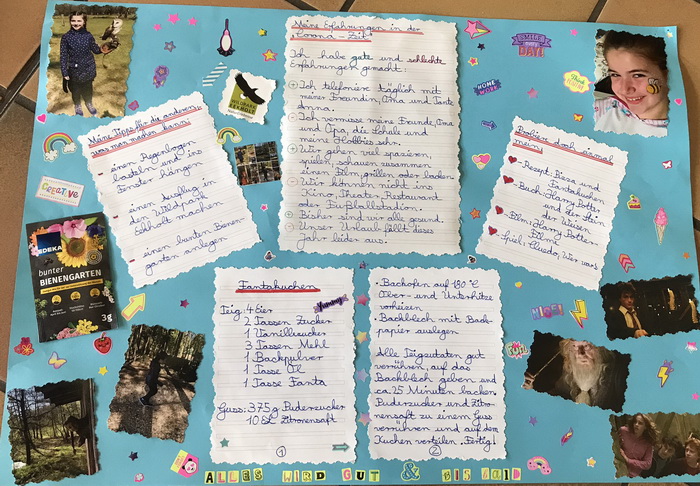 Meine Erfahrungen in der
"Corona-Zeit"
Ich habe gute und schlechte
Erfahrungen gemacht:
+ Ich telefoniere täglich mit
meiner Freundin, Oma und Tante
Anna.
- Ich vermisse meine Freunde, Oma
und Opa, die Schule und
meine Hobbies sehr.
+ Wir gehen viel spazieren,
spielen, schauen zusammen
einen Film, grillen oder baden
- Wir können nicht ins
Kino, Theater, Restaurant
oder Fußballstadion.
+ Bisher sind wir alle gesund.
- Unser Urlaub fällt dieses
Jahr leider aus.
Meine Tipps für die anderen,
was man machen kann:
- einen Regenbogen
basteln und ins
Fenster hängen
- einen Ausflug in
den Wildpark
Eekholt machen
- einen bunten Bienen-
garten anlegen
Probiere doch einmal
mein:
- Rezept: Pizza und
Fantakuchen
- Buch: Harry Potter
und der Stein
der Weisen
- Film: Harry Potter-
Filme
- Spiel: Cluedo, Wer war's
Fantakuchen
Teig: 4 Eier
2 Tassen Zucker
1 Vanillezucker
3 Tassen Mehl
1 Backpulver
1 Tasse Öl
1 Tasse Fanta
Guss: 375 g Puderzucker
10 EL Zitronensaft
1
• Backofen auf 180°C
Ober- und Unterhitze
vorheizen
• Backblech mit Back-
papier auslegen
Alle Teigzutaten gut
verrühren, auf das
Backblech geben und
ca. 25 Minuten backen.
Puderzucker und Zitro-
nensaft zu einem Guss
verrühren und auf dem
Kuchen verteilen. Fertig!
2
CREATIVE
EDEKA
bunter
BIENENGARTEN
3g
SMILE
DAY!
HOME
WORK
ALLES WIRD GUT & BIS BALD